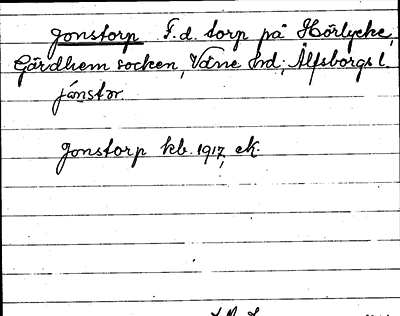 Jonstorp F.d. torp på Hörlycke,
Gärdhem socken, Väne hd; Älfsborgs l.
jånstər
Jonstorp kb. 1917, ek.